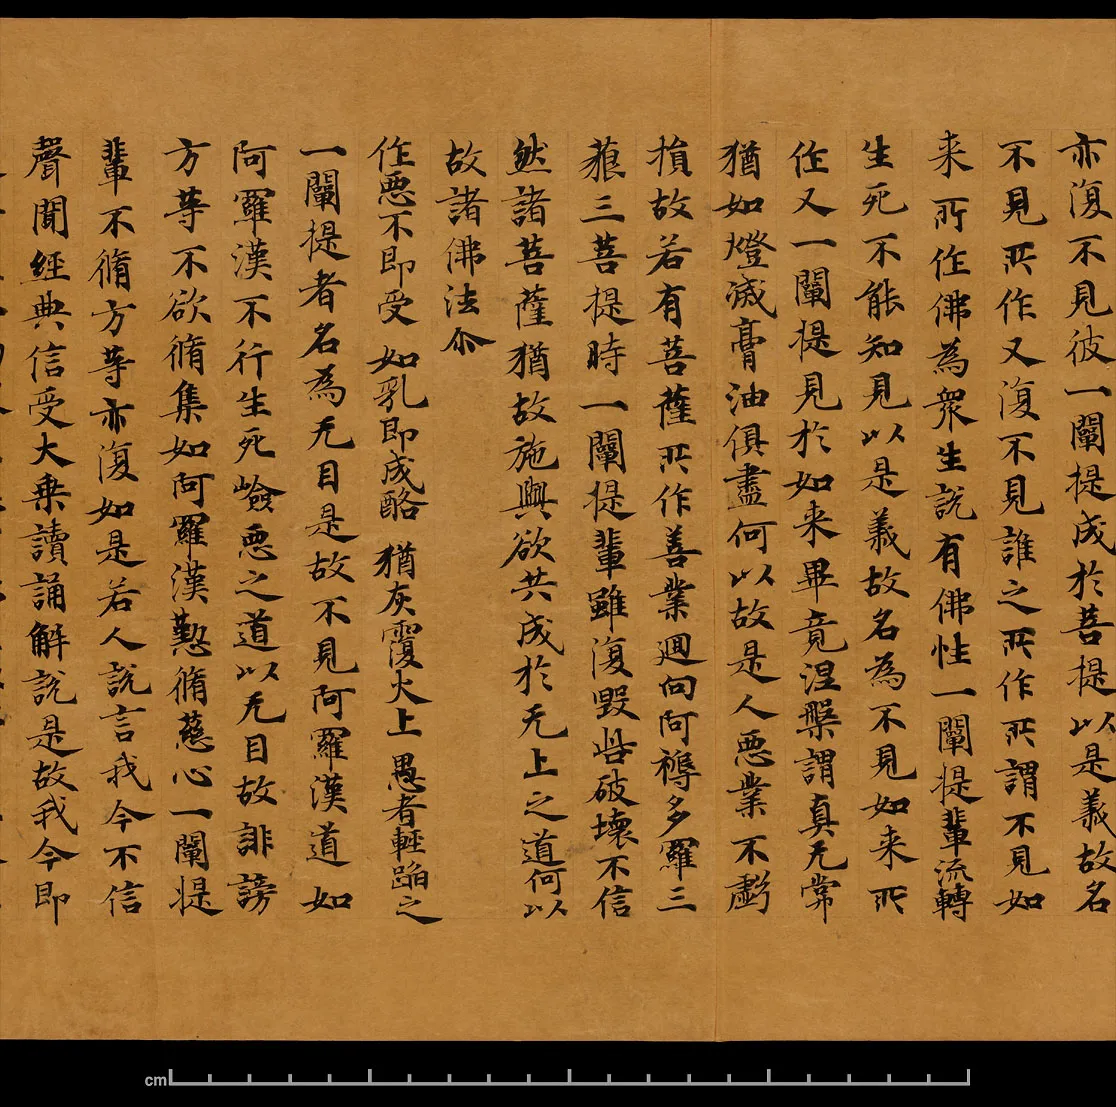 亦復不見彼一闡提成於菩提以是義故名
不見所作又復不見誰之所作所謂不見如
来所作佛為眾生說有佛性一闡提輩流轉
生死不能知見以是義故名為不見如来所
作又一闡提見於如来畢竟涅槃謂真无常
猶如燈滅膏油俱盡何以故是人惡業不虧
損故若有菩薩所作善業迴向阿耨多羅三
藐三菩提時一闡提輩雖復毀呰破壞不信
然諸菩薩猶故施與欲共成於无上之道何以
故諸佛法尒
作惡不即受 如乳即成酪 猶灰覆火上 愚者輕蹈之
一闡提者名為无目是故不見阿羅漢道如
阿羅漢不行生死嶮惡之道以无目故誹謗
方等不欲脩集如阿羅漢懃脩慈心一闡提
輩不脩方等亦復如是若人說言我今不信
聲聞經典信受大乗讀誦解說是故我今即